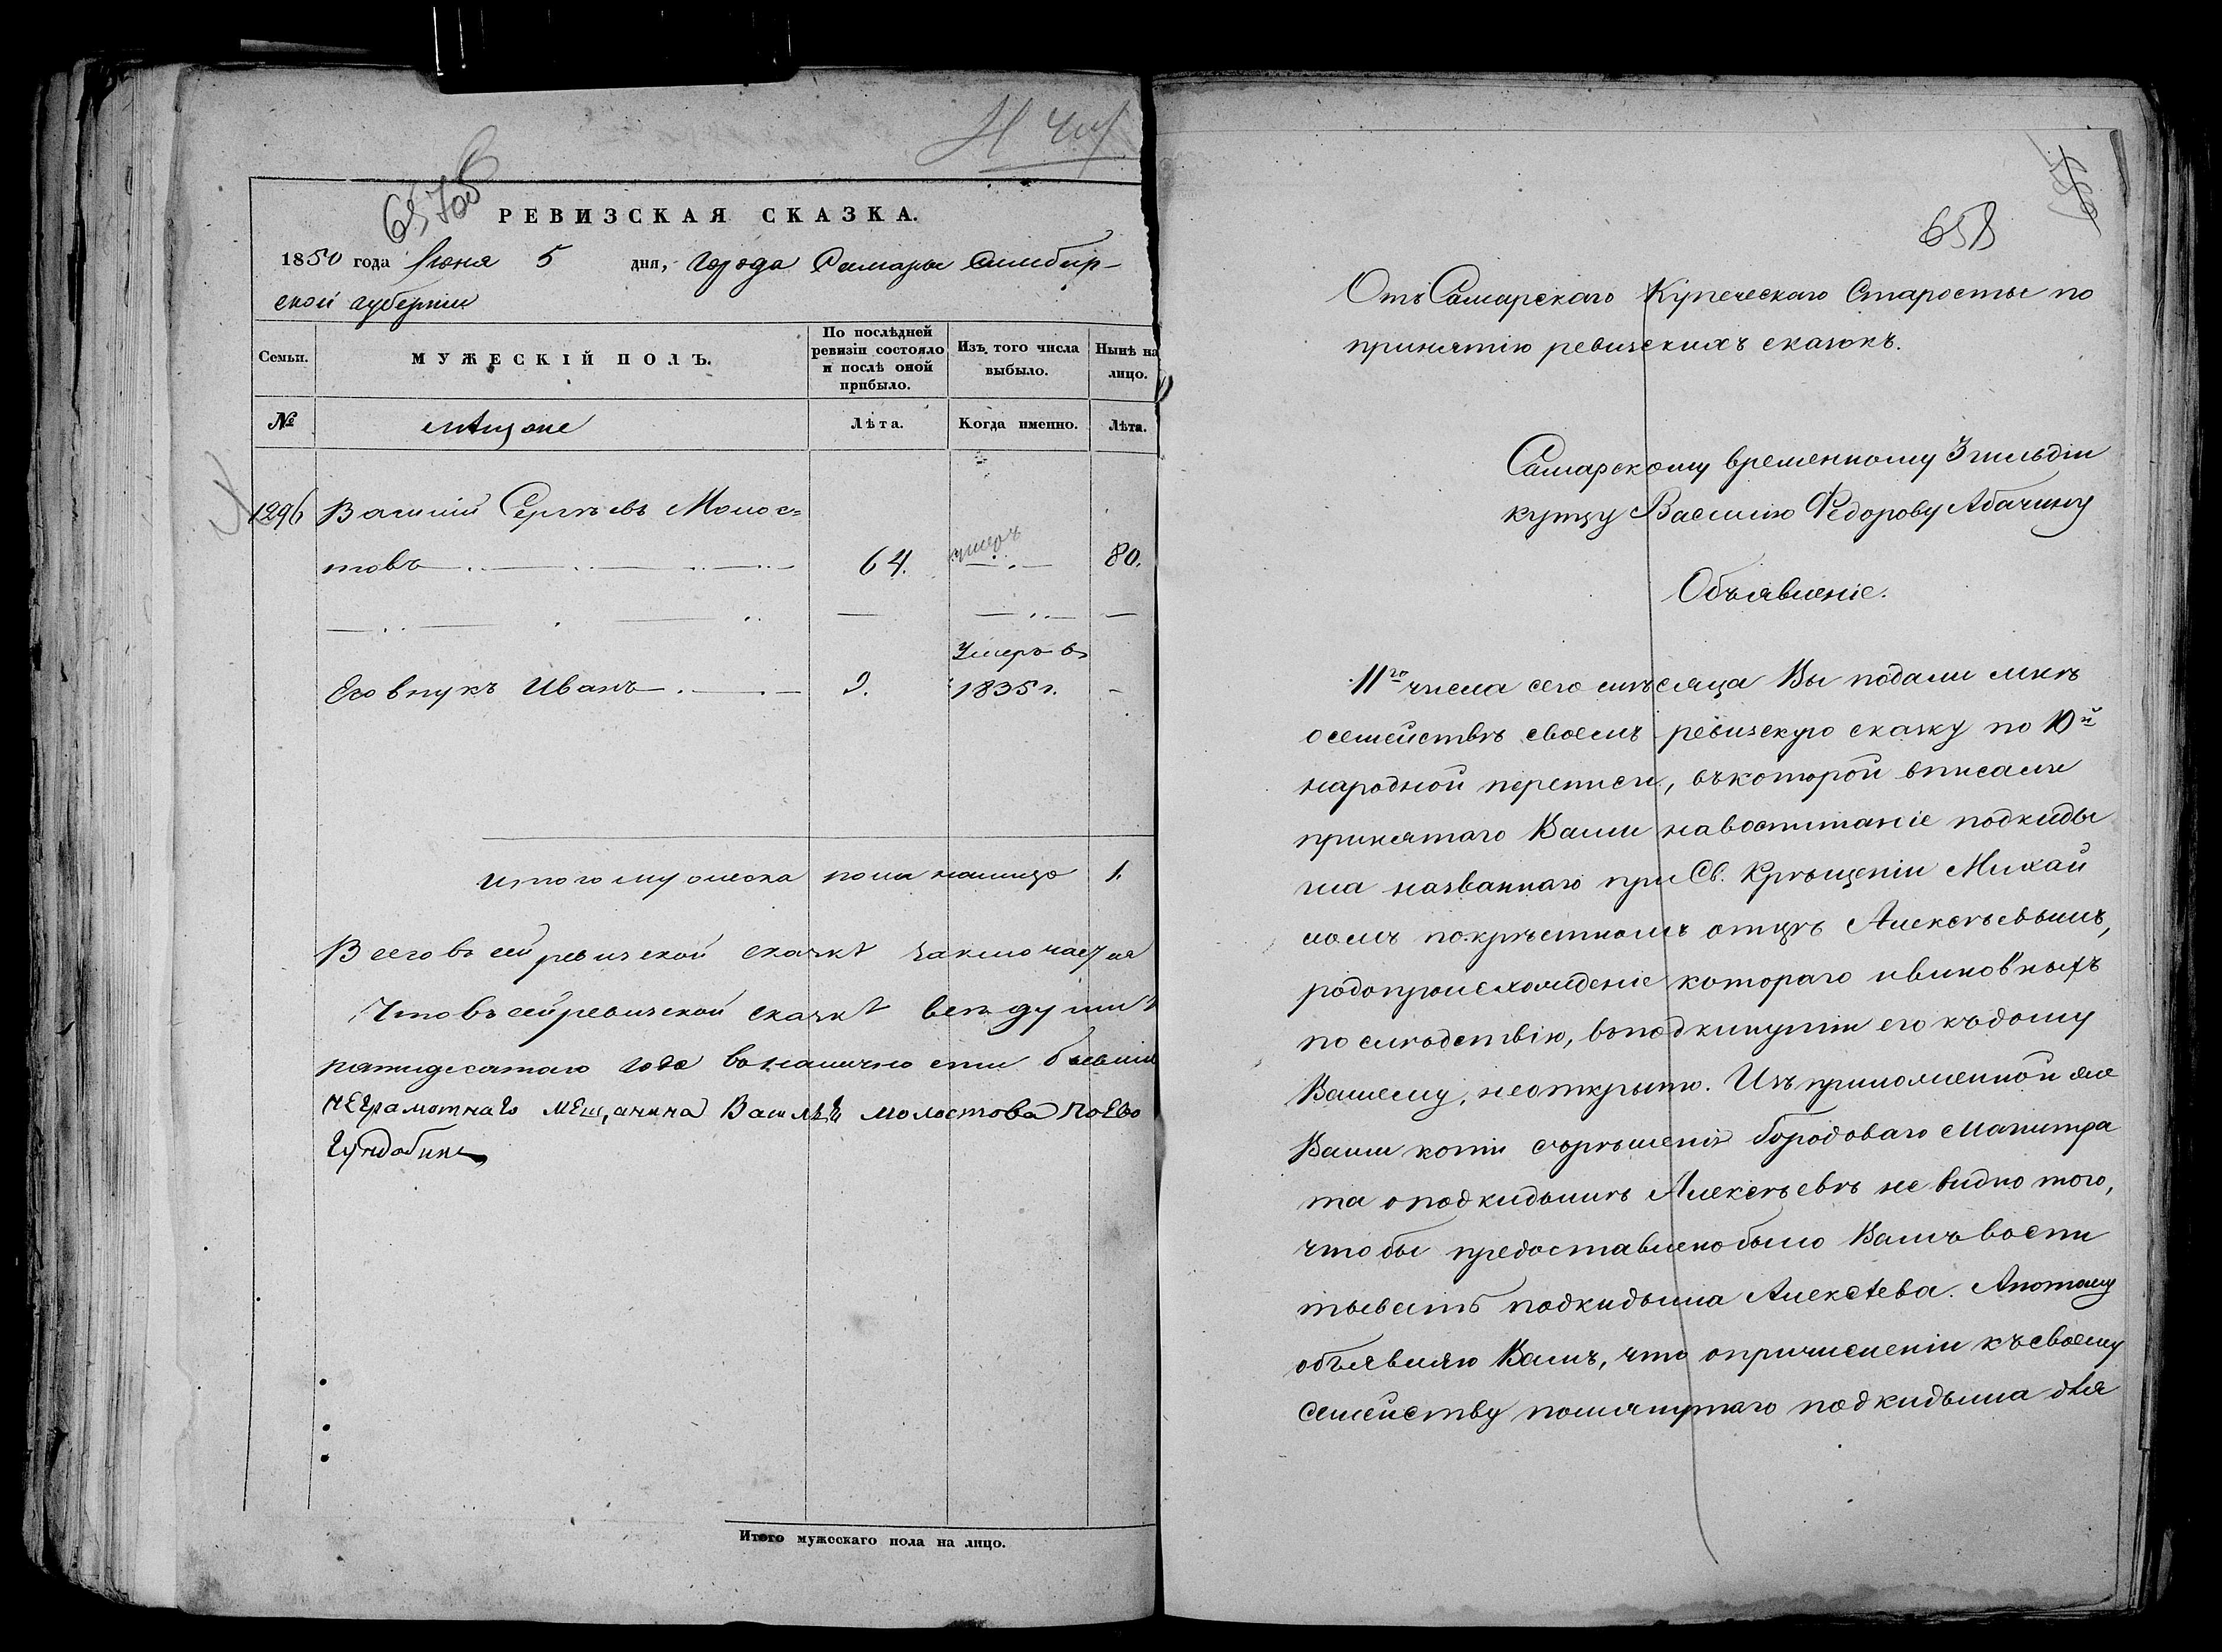 657об
РЕВИЗСКАЯ СКАЗКА.
1850 года Іюня 5 дня, города Самары Симбир-
ской губерніи
Семьи.
МУЖЕСКІЙ ПОЛЪ.
По послѣдней ревизіи состояло и послѣ оной прибыло.
Изъ того числа выбыло.
Нынѣ на лицо.
№
мѣщане
Лѣта.
Когда именно.
Лѣта.
1296 Василий Сергѣевъ Молос=
товъ 64. умеръ 80.
Умеръ въ
Его внукъ Иванъ 2. 1835 г.
Итого мужеска пола налицо 1.
Всего въ сей ревизской сказкѣ заключается
Что въ сей ревизской сказкѣ всѣ души
пятидесятаго года въ наличности бывшія
неграмотнаго мещанина Василья молостова По Ево
Итого мужескаго пола на лицо.
658
Отъ Самарскаго Купеческаго Старосты по
принятію ревизскихъ сказокъ.
Самарскому временному 3 гильдіи
купцу Василію Федорову Абачину
Объявленіе.
11го числа сего мѣсяца Вы подали мнѣ
о семействѣ своемъ ревизскую сказку по 10й
народной переписи, въ которой вписали
принятаго Вами на воспитаніе подкиды
ша названнаго при Св. Крѣщеніи Михай
ломъ по крѣстномъ отцѣ Алексѣевымъ,
родопроисхожденіе котораго и виновныхъ
по слѣдствію, въ подкинутіи его къ дому
Вашему, не открыто. Изъ приложенной же
Вами копіи съ рѣшенія Городоваго Магистра
та о подкидышѣ Алексѣевѣ не видно того,
чтобы предоставлено было Вамъ воспи
тывать подкидыша Алексѣева. А потому
объявляю Вамъ, что о причисленіи къ своему
семейству помянутаго подкидыша для